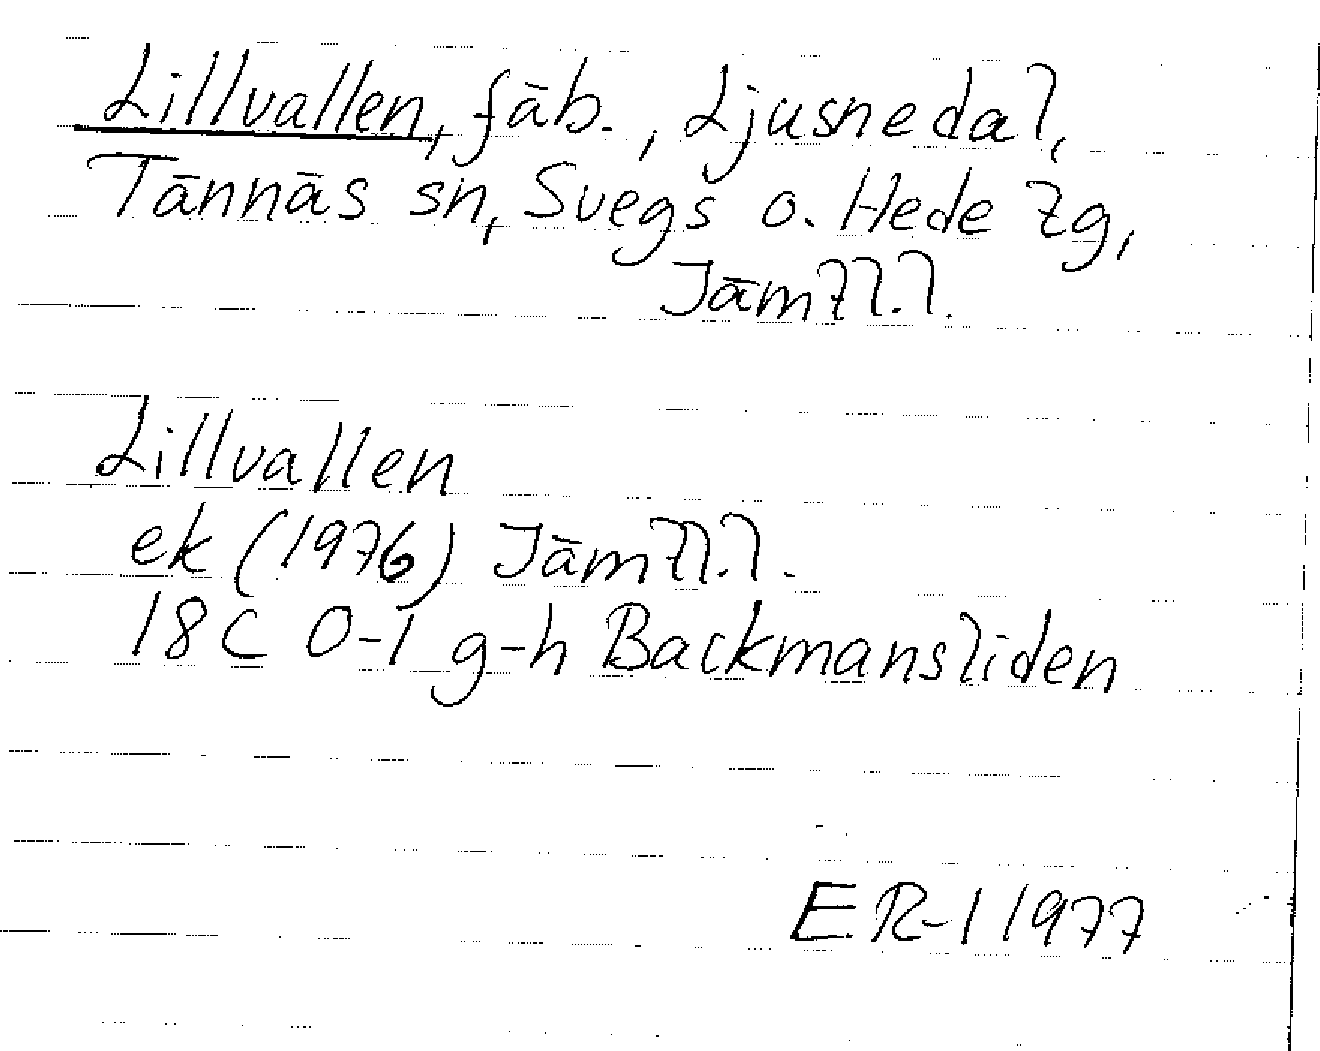 Lillvallen, fäb., Ljusnedal,
Tännäs sn, Svegs o. Hede tg,
Jämtl.l.
Lillvallen
ek (1976) Jämtl.l.
18C 0-1 g-h Backmansliden
ER-1 1977